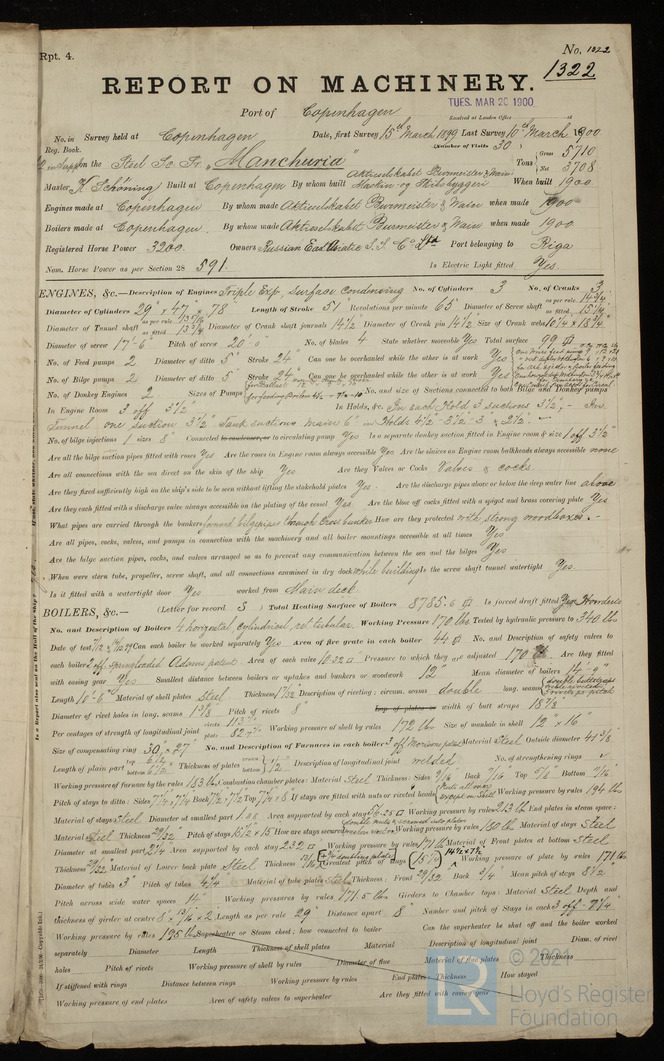 Rpt. 4.
No. 1022
1322
REPORT ON MACHINERY.
Port of Copenhagen
TUES. MAR 20 1900
Received at London Office
No. in Survey held at Copenhagen Date, first Survey 15th March 1899 Last Survey 10th March 1900
Reg. Book. (Number of Visits 30)
on the Steel Sc. Sr. "Manchuria" Tons Gross 5710 Net 3708
Master K. Schöning Built at Copenhagen By whom built Aktieselskabet Burmeister & Wain Maskin- og Skibsbyggeri When built 1900
Engines made at Copenhagen By whom made Aktieselskabet Burmeister & Wain when made 1900
Boilers made at Copenhagen. By whom made Aktieselskabet Burmeister & Wain when made 1900
Registered Horse Power 3200. Owners Russian East Asiatic S.S. Co Ltd Port belonging to Riga
Nom. Horse Power as per Section 28 591. Is Electric Light fitted Yes.
ENGINES, &c.—Description of Engines Triple Exp, surface condensing No. of Cylinders 3 No. of Cranks 3
Diameter of Cylinders 29" x 47" x 78 Length of Stroke 51" Revolutions per minute 65 Diameter of Screw shaft as per rule 14 3/4" as fitted 15 1/4
Diameter of Tunnel shaft as per rule as fitted 13 3/4 Diameter of Crank shaft journals 14 1/2 Diameter of Crank pin 14 1/2" Size of Crank webs
Diameter of screw 17'-6" Pitch of screw 20'-0" No. of blades 4 State whether moveable Yes Total surface 99
No. of Feed pumps 2 Diameter of ditto 5" Stroke 24" Can one be overhauled while the other is at work Yes
No. of Bilge pumps 2 Diameter of ditto 5" Stroke 24" Can one be overhauled while the other is at work Yes
No. of Donkey Engines 2 Sizes of Pumps No. and size of Suctions connected to both Bilge and Donkey pumps
In Engine Room 3 off 3 1/2" In Holds, &c. In each Hold 3 suctions 3 1/2", - In
Tunnel one suction 3 1/2" Tank suctions main 6" in Holds 4 1/2" 3 1/2" 3" & 2 1/2". -
No. of bilge injections 1 sizes 8" Connected to condenser, or to circulating pump Yes Is a separate donkey suction fitted in Engine room & size 1 off 3 1/2"
Are all the bilge suction pipes fitted with roses Yes Are the roses in Engine room always accessible Yes Are the sluices on Engine room bulkheads always accessible none
Are all connections with the sea direct on the skin of the ship Yes Are they Valves or Cocks Valves & cocks.
Are they fixed sufficiently high on the ship's side to be seen without lifting the stokehold plates Yes Are the discharge pipes above or below the deep water line above
Are they each fitted with a discharge valve always accessible on the plating of the vessel Yes Are the blow off cocks fitted with a spigot and brass covering plate Yes
What pipes are carried through the bunkers forward bilgepipes through Cross bunker How are they protected with strong woodboxes. -
Are all pipes, cocks, valves, and pumps in connection with the machinery and all boiler mountings accessible at all times Yes
Are the bilge suction pipes, cocks, and valves arranged so as to prevent any communication between the sea and the bilges Yes
When were stern tube, propeller, screw shaft, and all connections examined in dry dock While building Is the screw shaft tunnel watertight Yes
Is it fitted with a watertight door Yes worked from Main deck
BOILERS, &c.— (Letter for record 3) Total Heating Surface of Boilers 8785.6 Is forced draft fitted Yes Howdens
No. and Description of Boilers 4 horizontal, cylindrical, ret tubular. Working Pressure 170 lbs Tested by hydraulic pressure to 340 lbs
Date of test Can each boiler be worked separately Yes Area of fire grate in each boiler 44 No. and Description of safety valves to
each boiler 2 off Springloaded Adams patent Area of each valve 10.32 Pressure to which they are adjusted 170 Are they fitted
with easing gear Yes Smallest distance between boilers or uptakes and bunkers or woodwork 12" Mean diameter of boilers 14'-9"
Length 10'-6" Material of shell plates Steel Thickness 1 7/32 Description of riveting: circum. seams double long. seams
Diameter of rivet holes in long. seams 1 3/8 Pitch of rivets 8" Lap of plates or width of butt straps 18 7/8"
Per centages of strength of longitudinal joint rivets plate 82.7% Working pressure of shell by rules 172 lbs Size of manhole in shell 12" x 16"
Size of compensating ring 30 x 27 No. and Description of Furnaces in each boiler 3 off Morisons patent Material Steel Outside diameter 41 3/8
Length of plain part top 6 1/2" bottom 6 1/2" Thickness of plates crown bottom 1/2" Description of longitudinal joint welded. No. of strengthening rings
Working pressure of furnace by the rules 183 lbs Combustion chamber plates: Material Steel Thickness: Sides 9/16 Back 9/16" Top 5/8" Bottom 1 1/16"
Pitch of stays to ditto: Sides Back Top If stays are fitted with nuts or riveted heads Working pressure by rules 194 lbs
Material of stays Steel Diameter at smallest part Area supported by each stay Working pressure by rules 213 lbs End plates in steam space:
Material Steel Thickness 29/32" Pitch of stays 15 1/2 x 15 How are stays secured Working pressure by rules 180 lbs Material of stays Steel
Diameter at smallest part 2 1/4" Area supported by each stay 232 Working pressure by rules 171 lbs Material of Front plates at bottom Steel
Thickness 29/32" Material of Lower back plate Steel Thickness Greatest pitch of stays Working pressure of plate by rules 171 lbs
Diameter of tubes 3" Pitch of tubes 4 1/4 Material of tube plates Steel Thickness: Front 29/32 Back 3/4 Mean pitch of stays 8 1/2
Pitch across wide water spaces 14" Working pressures by rules 171.5 lbs Girders to Chamber tops: Material Steel Depth and
thickness of girder at centre Length as per rule 29" Distance apart 8" Number and pitch of Stays in each 3 off 7 1/4"
Working pressure by rules 195 lbs Superheater or Steam chest; how connected to boiler Can the superheater be shut off and the boiler worked
separately Diameter Length Thickness of shell plates Material Description of longitudinal joint Diam. of rivet
holes Pitch of rivets Working pressure of shell by rules Diameter of flue Material of flue plates Thickness
If stiffened with rings Distance between rings Working pressure by rules End plates Thickness How stayed
Working pressure of end plates Area of safety valves to superheater Are they fitted with easing gear
© 2021
LR
Lloyd's Register
Foundation